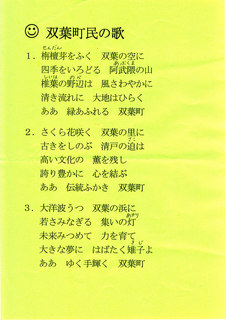 双葉町民の歌
せんだん
1．栴檀芽をふく　双葉の空に
あぶくま
四季をいろどる　阿武隈の山
しいは　のべ
椎葉の野辺は　風さわやかに
清き流れに　大地はひらく
ああ　緑あふれる　双葉町
2．さくら花咲く　双葉の里に
さこ
古きをしのぶ　清戸の迫は
高い文化の　薫を残し
誇り豊かに　心を結ぶ
ああ　伝統ふかき　双葉町
3．大洋波うつ　双葉の浜に
あかり
若さみなぎる　集いの灯
未来みつめて　力を育て
きじ
大きな夢に　はばたく雉子よ
ああ　ゆく手輝く　双葉町